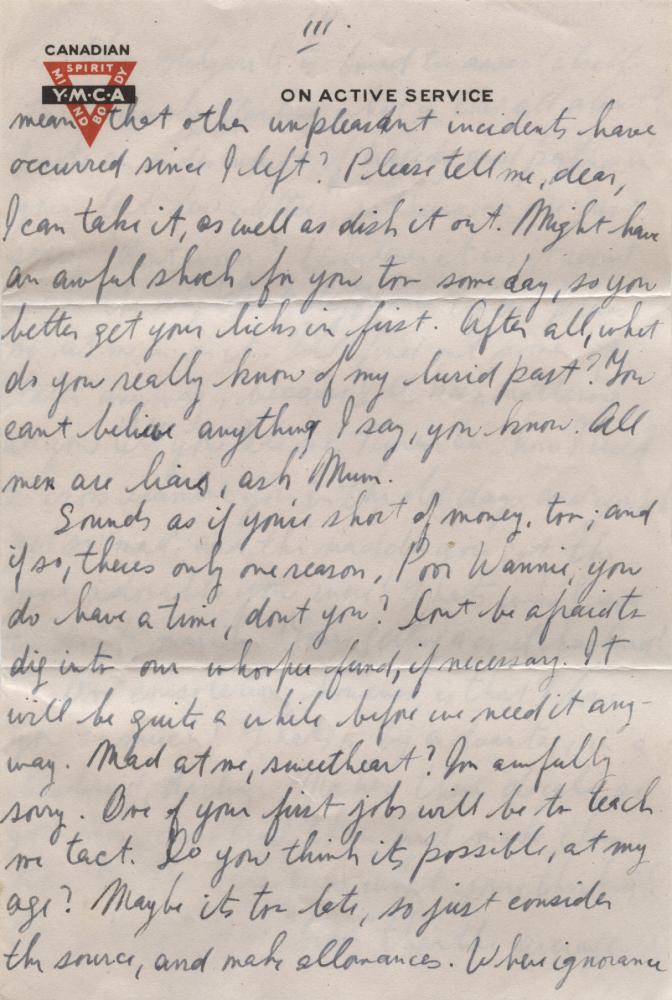 III.
CANADIAN
SPIRIT
MIND BODY
Y·M·C·A
ON ACTIVE SERVICE
mean that other unpleasant incidents have
occurred since I left? Please tell me, dear,
I can take it, as well as dish it out. Might have
an awful shock for you too some day, so you
better get your licks in first. After all, what
do you really know of my lurid past? You
cant believe anything I say, you know. All
men are liars, ask Mum.
Sounds as if you're short of money, too; and
if so, theres only one reason, Poor Wannie, you
do have a time, dont you? Dont be afraid to
dig into our whoopee fund, if necessary. It
will be quite a while before we need it any-
way. Mad at me, sweetheart? Im awfully
sorry. One of your first jobs will be to teach
me tact. Do you think its possible, at my
age? Maybe its too late, so just consider
the source, and make allowances. Where ignorance